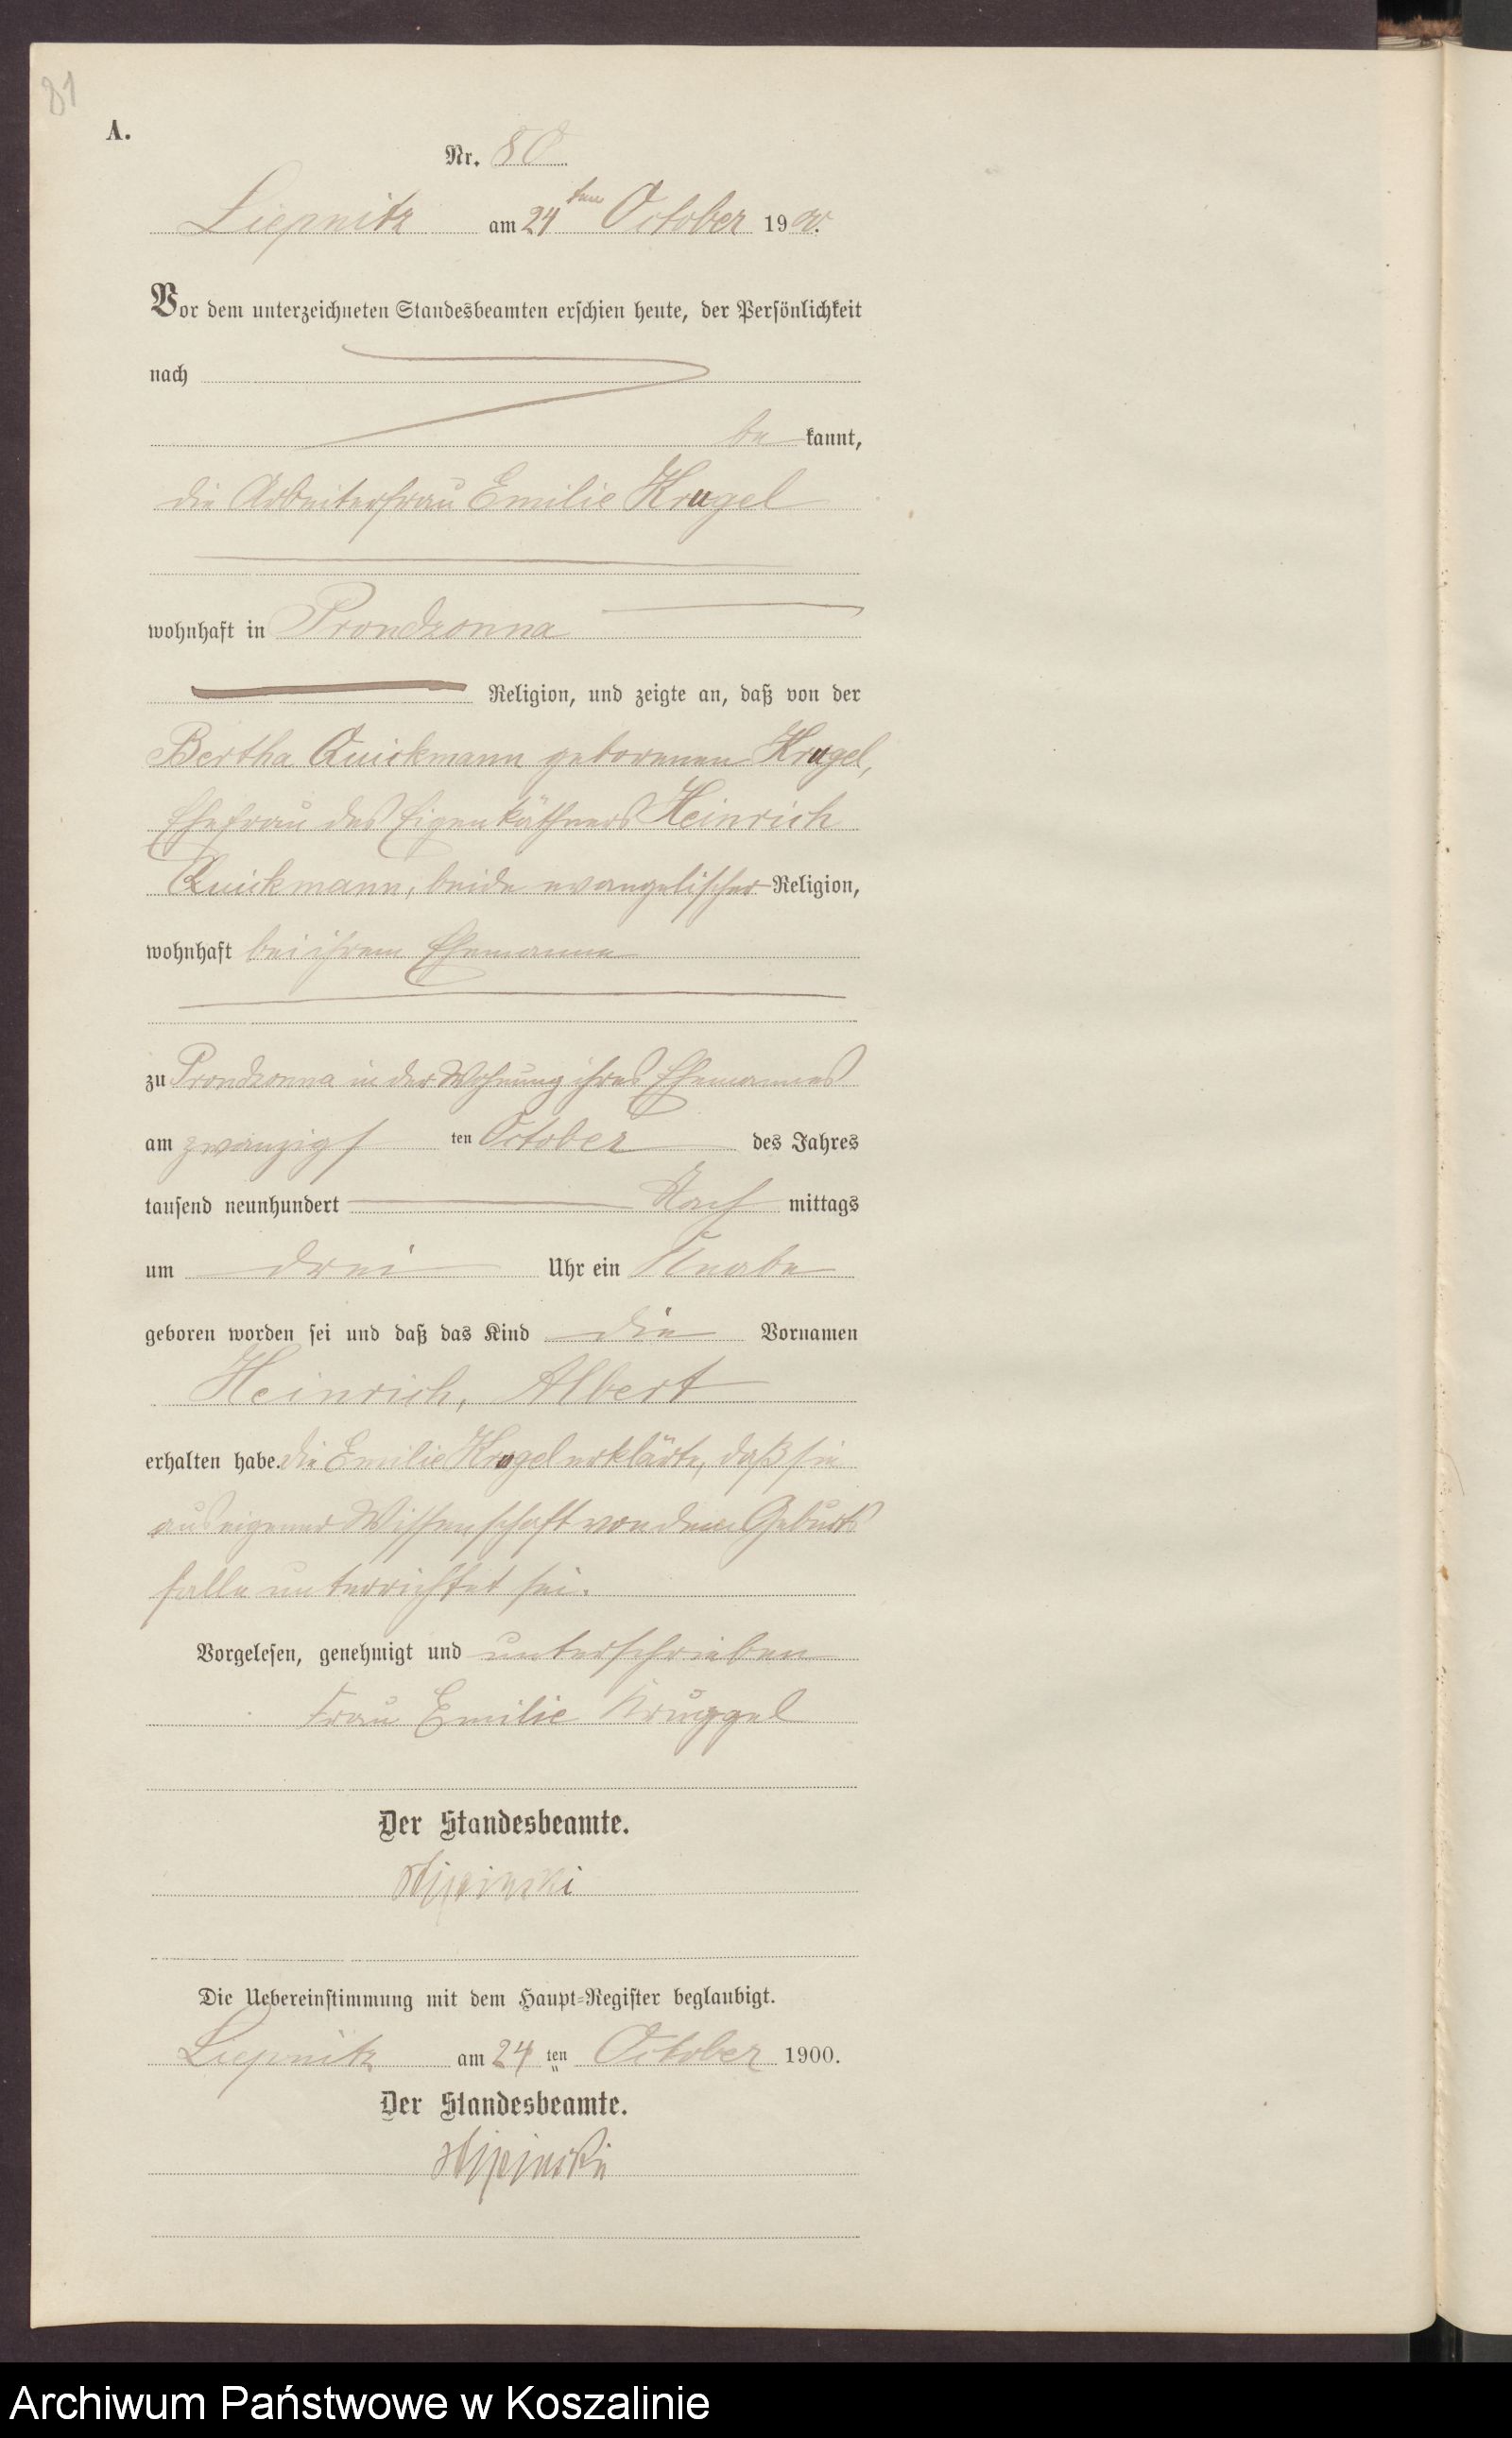 81
A.
Nr. 80
Liepnitz am 24ten October 1900.
Vor dem unterzeichneten Standesbeamten erschien heute, der Persönlichkeit
nach
be kannt,
die Arbeiterfrau Emilie Krugel
wohnhaft in Prondzonna
Religion, und zeigte an, daß von der
Bertha Quickmann geborenen Krugel,
Ehefrau des Eigenkäthners Heinrich
Quickmann, beide evangelischer Religion,
wohnhaft bei ihrem Ehemanne
zu Prondzonna in der Wohnung ihres Ehemannes
am zwanzigs ten October des Jahres
tausend neunhundert Nach mittags
um drei Uhr ein Knabe
geboren worden sei und daß das Kind die Vornamen
Heinrich, Albert
erhalten habe. Die Emilie Krugel erklärte, daß sie
aus eigener Wissenschaft von dem Geburts
falle unterrichtet sei.
Vorgelesen, genehmigt und unterschrieben
Frau Emilie Kruggel
Der Standesbeamte.
Die Uebereinstimmung mit dem Haupt-Register beglaubigt.
Liepnitz am 24 ten October 1900.
Der Standesbeamte.
Archiwum Państwowe w Koszalinie